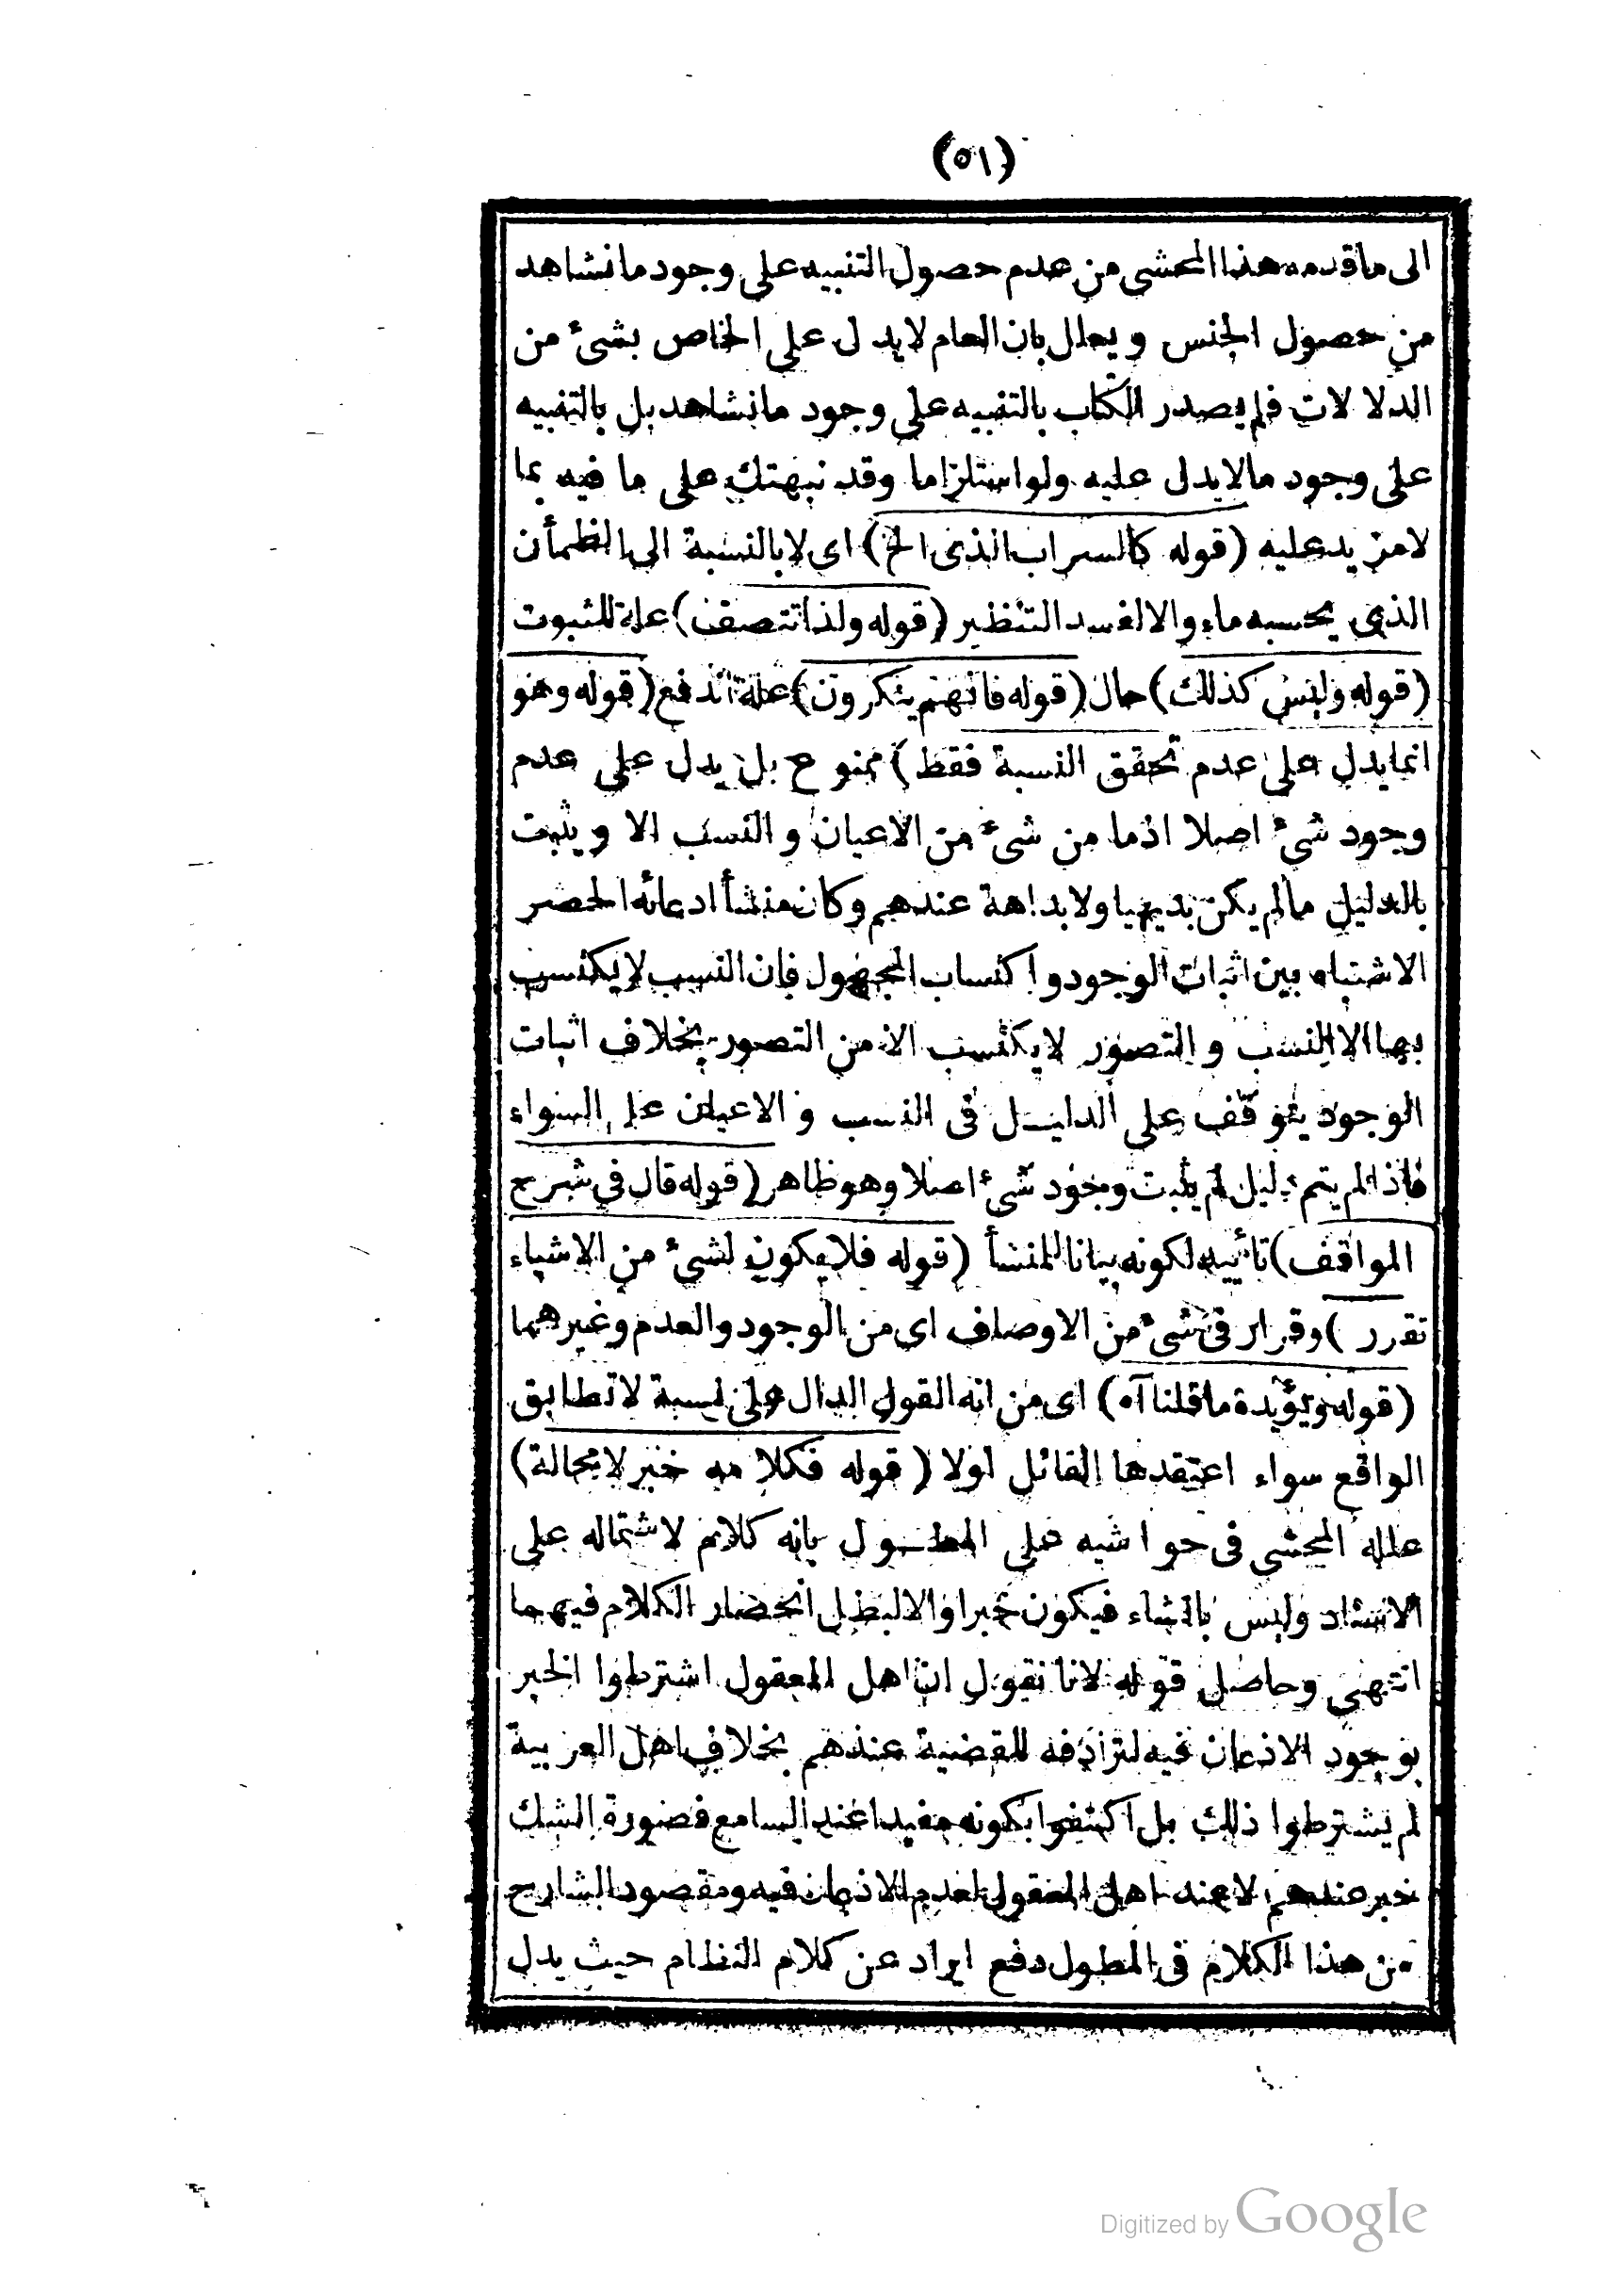 (٥١)
الى ما قدمه هذا المحشى من عدم حصول التنبيه على وجود ما نشاهد
من حصول الجنس ويعلل بان العام لا يدل على الخاص بشئ من
الدلالات فلم يصدر الكتاب بالتنبيه على وجود ما نشاهد بل بالتنبيه
على وجود ما لا يدل عليه ولو استلزاما وقد نبهتك على ما فيه بما
لا مزيد عليه (قوله كالسراب الذى الخ) اى لا بالنسبة الى الظمأن
الذى يحسبه ماء والا لفسد التنظير (قوله ولذا تتصف) علة للثبوت
(قوله وليس كذلك) حال (قوله فانهم ينكرون) علة اندفع (قوله وهو
انما يدل على عدم تحقق النسبة فقط) ممنوع بل يدل على عدم
وجود شئ اصلا اذ ما من شئ من الاعيان والنسب الا ويثبت
بالدليل ما لم يكن بديهيا ولا بداهة عندهم وكان منشأ ادعائه الحصر
الاشتباه بين اثبات الوجود واكتساب المجهول فان النسب لا يكتسب
بها الا النسب والتصور لا يكتسب الا من التصور بخلاف اثبات
الوجود يتوقف على الدليل فى النسب والاعيان على السواء
فاذا لم يتم دليل لم يثبت وجود شئ اصلا وهو ظاهر (قوله قال فى شرح
المواقف) تأييد لكونه بيانا للمنشأ (قوله فلا يكون لشئ من الاشياء
تقرر) وقرار فى شئ من الاوصاف اى من الوجود والعدم وغيرهما
(قوله ويؤيده ما قلنا آه) اى من انه القول الدال على نسبة لا تطابق
الواقع سواء اعتقدها القائل اولا (قوله فكلامه خبر لا محالة)
علله المحشى فى حواشيه على المطول بانه كلام لاشتماله على
الاسناد وليس بانشاء فيكون خبرا والا لبطل انحصار الكلام فيهما
انتهى وحاصل قوله لانا نقول ان اهل المعقول اشترطوا الخبر
بوجود الاذعان فيه لترادفه للقضية عندهم بخلاف اهل العربية
لم يشترطوا ذلك بل اكتفوا بكونه مفيدا عند السامع فصورة الشك
خبر عندهم لا عند اهل المعقول لعدم الاذعان فيه ومقصود الشارح
من هذا الكلام فى المطول دفع ايراد عن كلام النظام حيث يدل
Digitized by Google